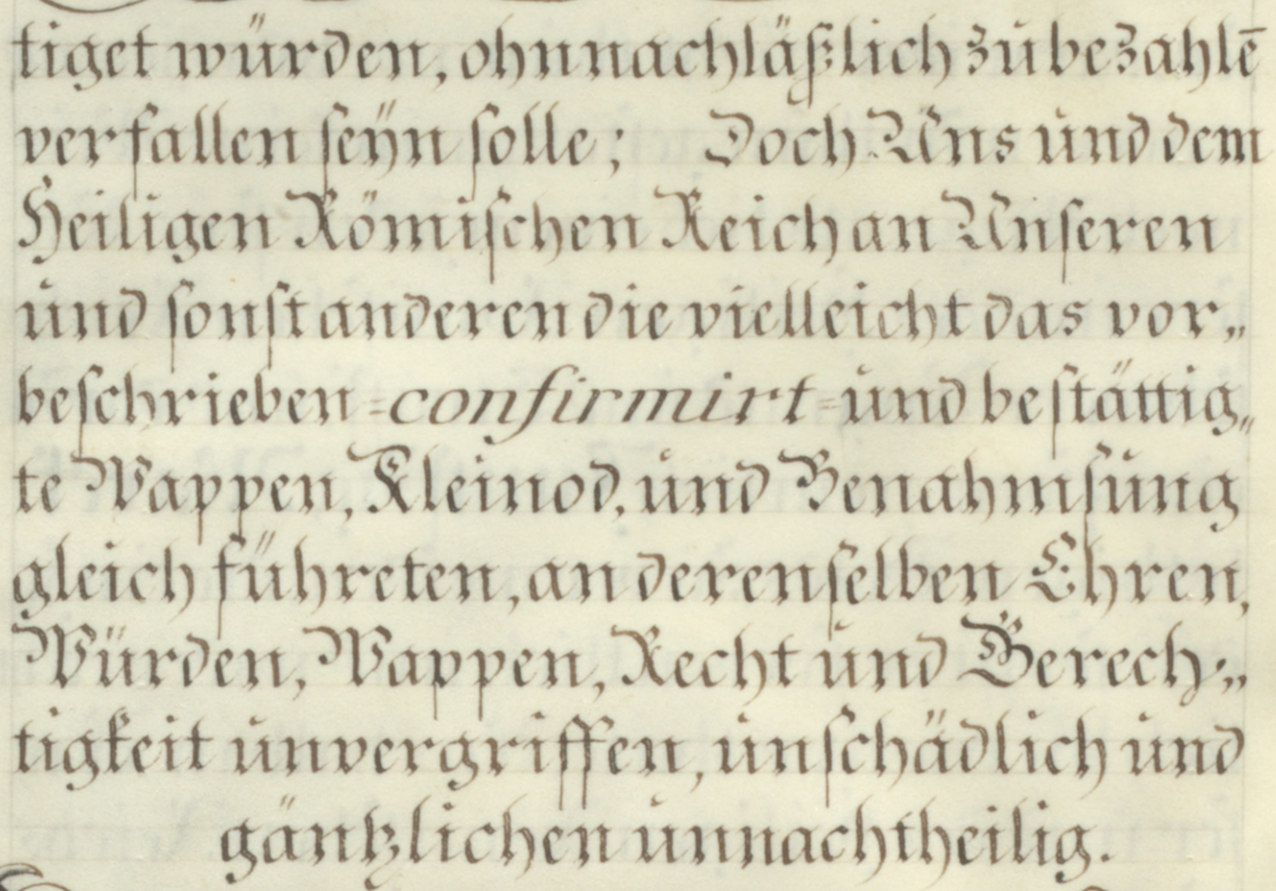 tiget würden, ohnnachläßlich zu bezahlē
verfallen seÿn solle; Doch Uns und dem
Heiligen Römischen Reich an Unseren
und sonst anderen die vielleicht das vor„
beschrieben =confirmirt= und bestättig„
te Wappen, Kleinod, und Benahmsung
gleich führeten, an derenselben Ehren,
Würden, Wappen, Recht und Gerech„
tigkeit unvergriffen, unschädlich und
gäntzlichen unnachtheilig.